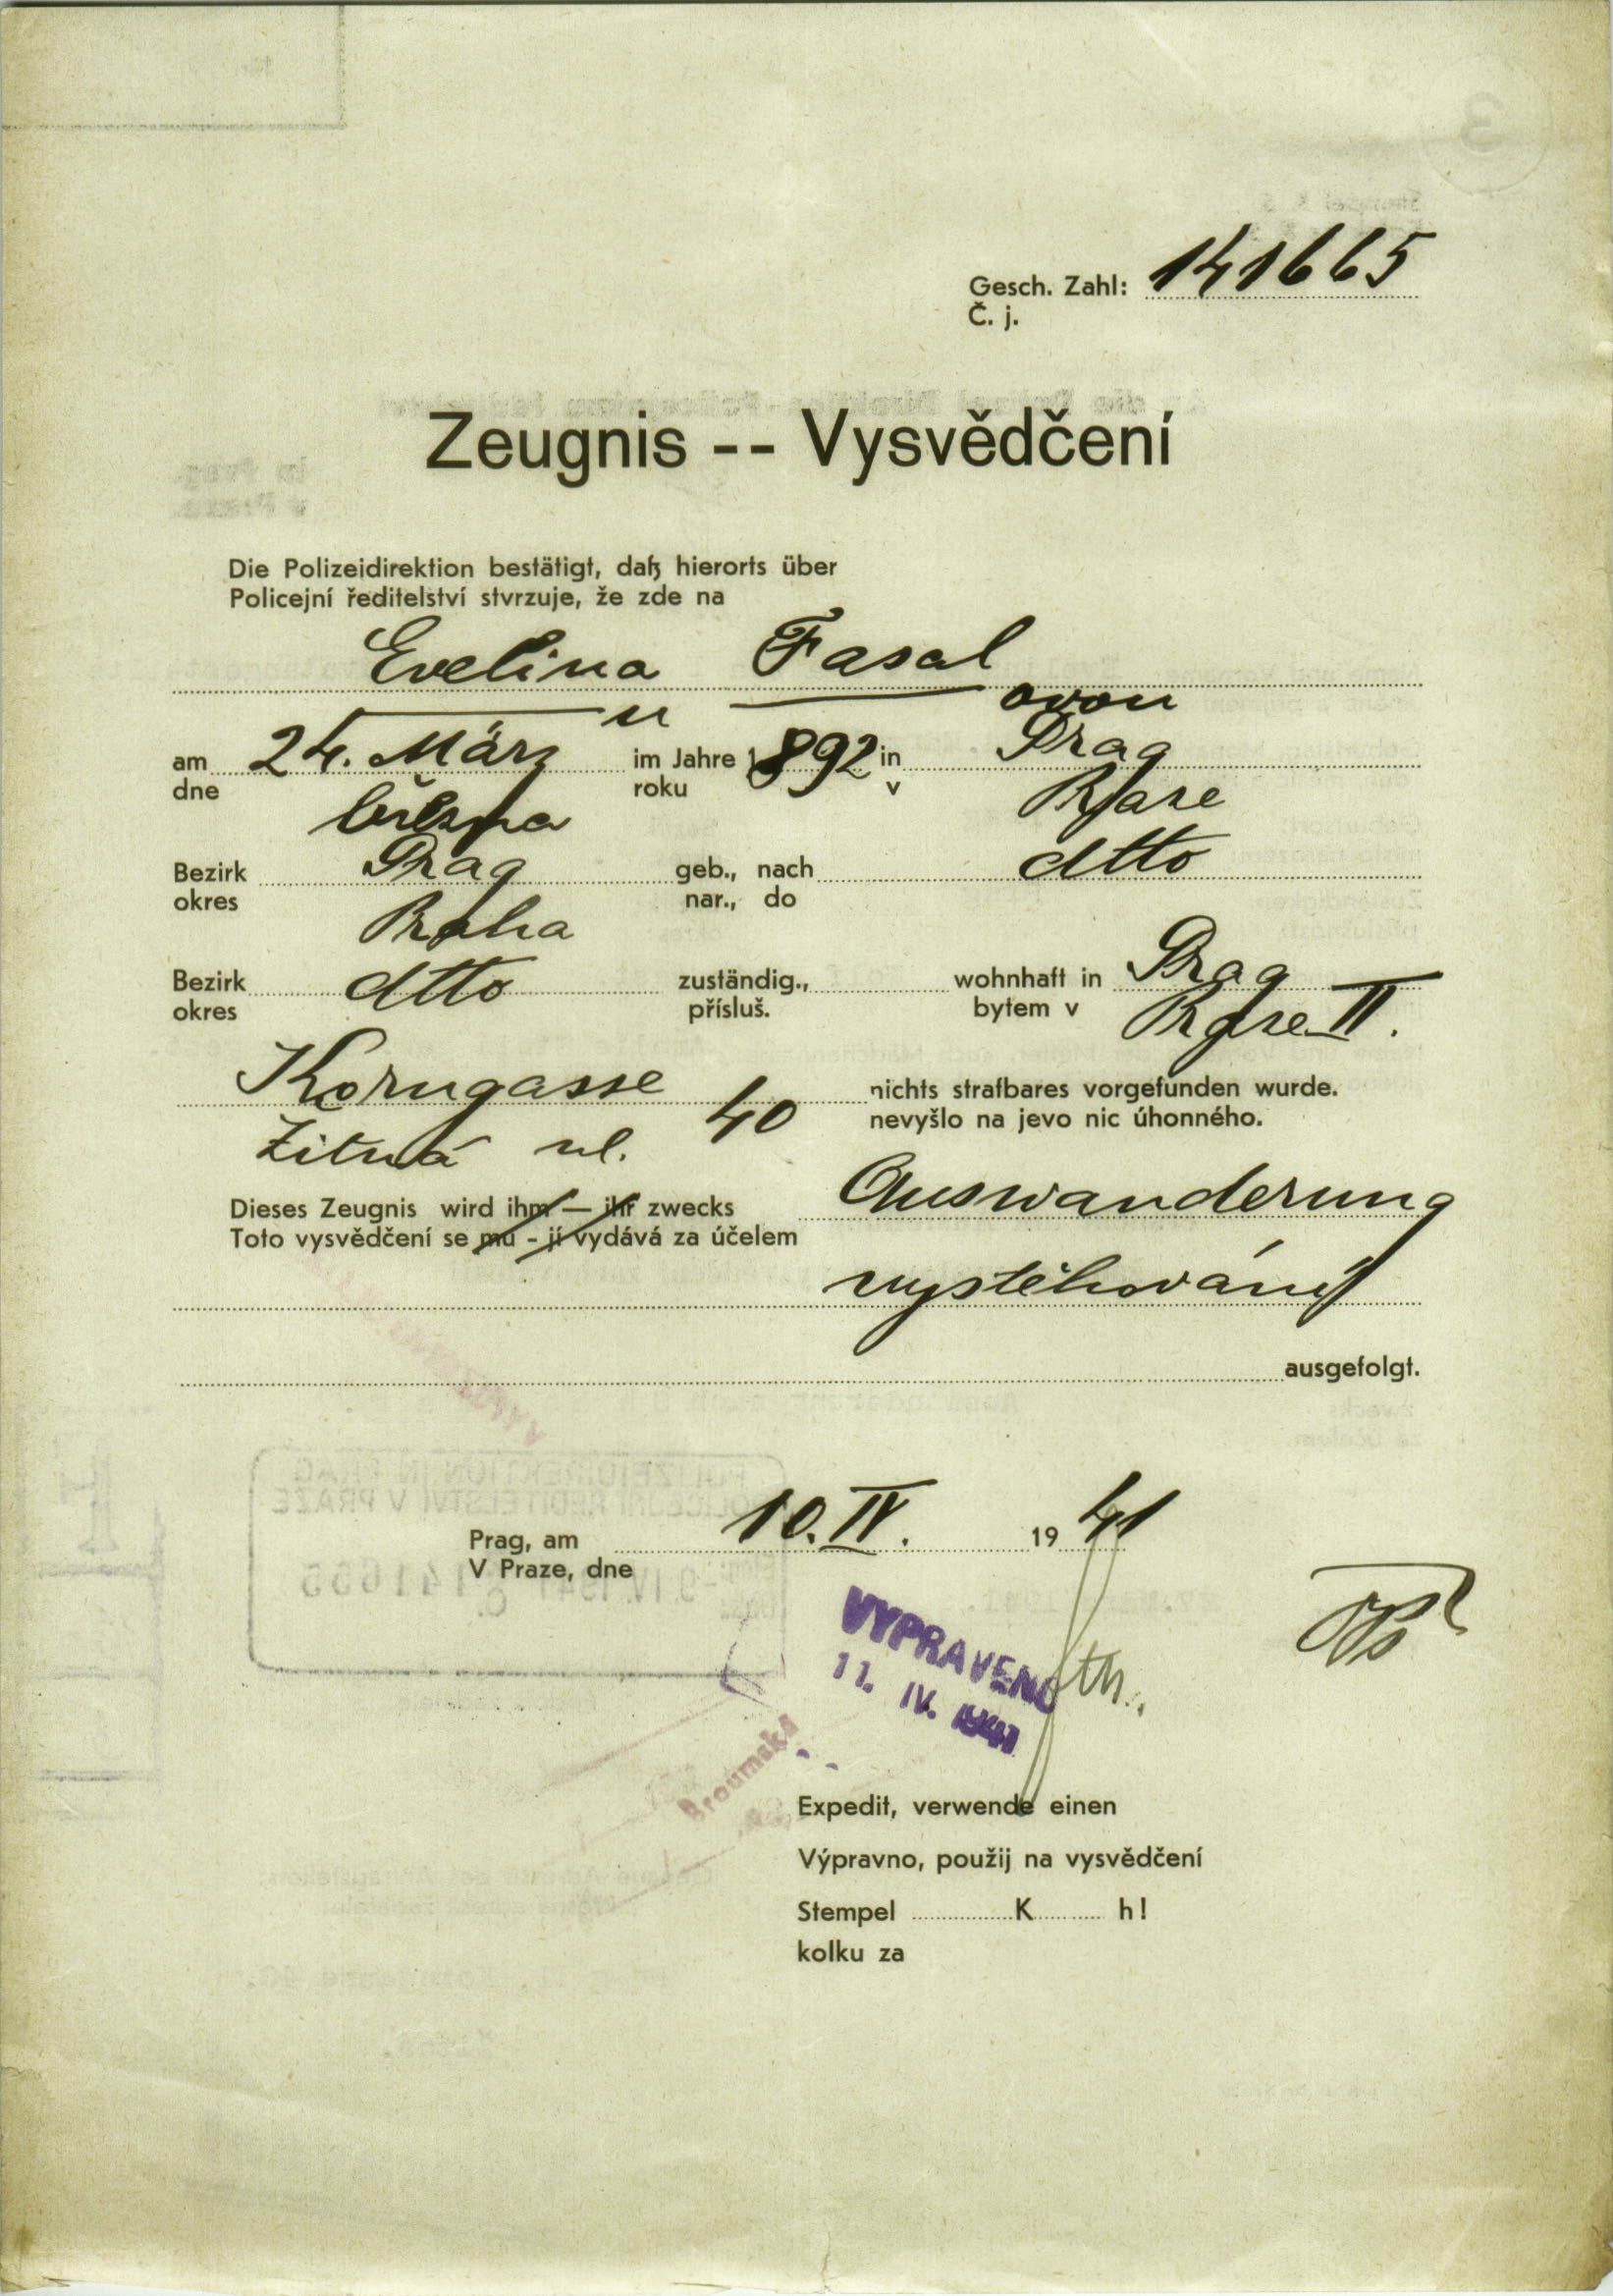 Gesch. Zahl: 141665
Č. j.
Zeugnis -- Vysvědčení
Die Polizeidirektion bestätigt, daß hierorts über
Policejní ředitelství stvrzuje, že zde na
Evelina Fasal
u ovou
am 24. März im Jahre 1892 in Prag
dne března roku v Praze
Bezirk Prag geb., nach dtto
okres Praha nar., do
Bezirk dtto zuständig., wohnhaft in Prag
okres přísluš. bytem v Praze II.
Korngasse 40 nichts strafbares vorgefunden wurde.
Žitná ul. nevyšlo na jevo nic úhonného.
Dieses Zeugnis wird ihm — ihr zwecks Auswanderung
Toto vysvědčení se mu - jí vydává za účelem
vystěhování
ausgefolgt.
Prag, am 10. IV. 19 41
V Praze, dne
VYPRAVENO
11. IV. 1941
Broumská
Expedit, verwende einen
Výpravno, použij na vysvědčení
Stempel K h!
kolku za